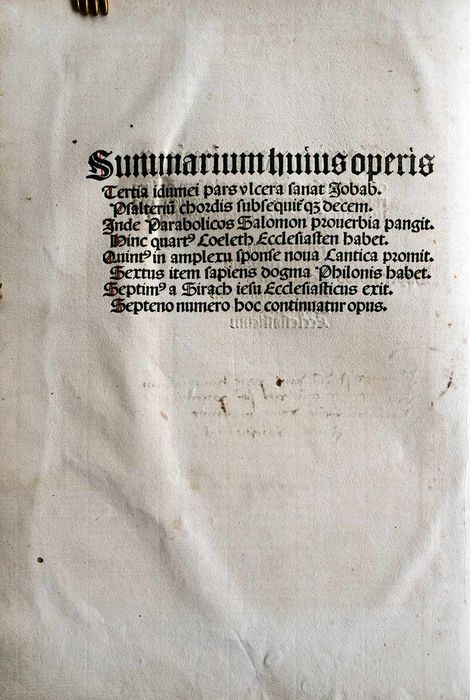 Summarium huius operis
Tertia idumei pars vlcera sanat Jobab.
Psalteriū chordis subsequit̃ qꝫ decem.
Inde Parabolicos Salomon prouerbia pangit.
Hinc quartꝰ Coeleth Ecclesiasten habet.
Quintꝰ in amplexu sponse noua Cantica promit.
Sextus item sapiens dogma Philonis habet.
Septimꝰ a Sirach iesu Ecclesiasticus exit.
Septeno numero hoc continuatur opus.